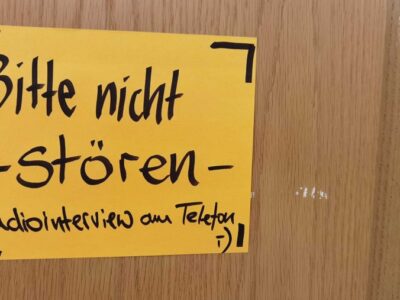 Bitte nicht
-stören-
adiointerview am Telefon
:-)